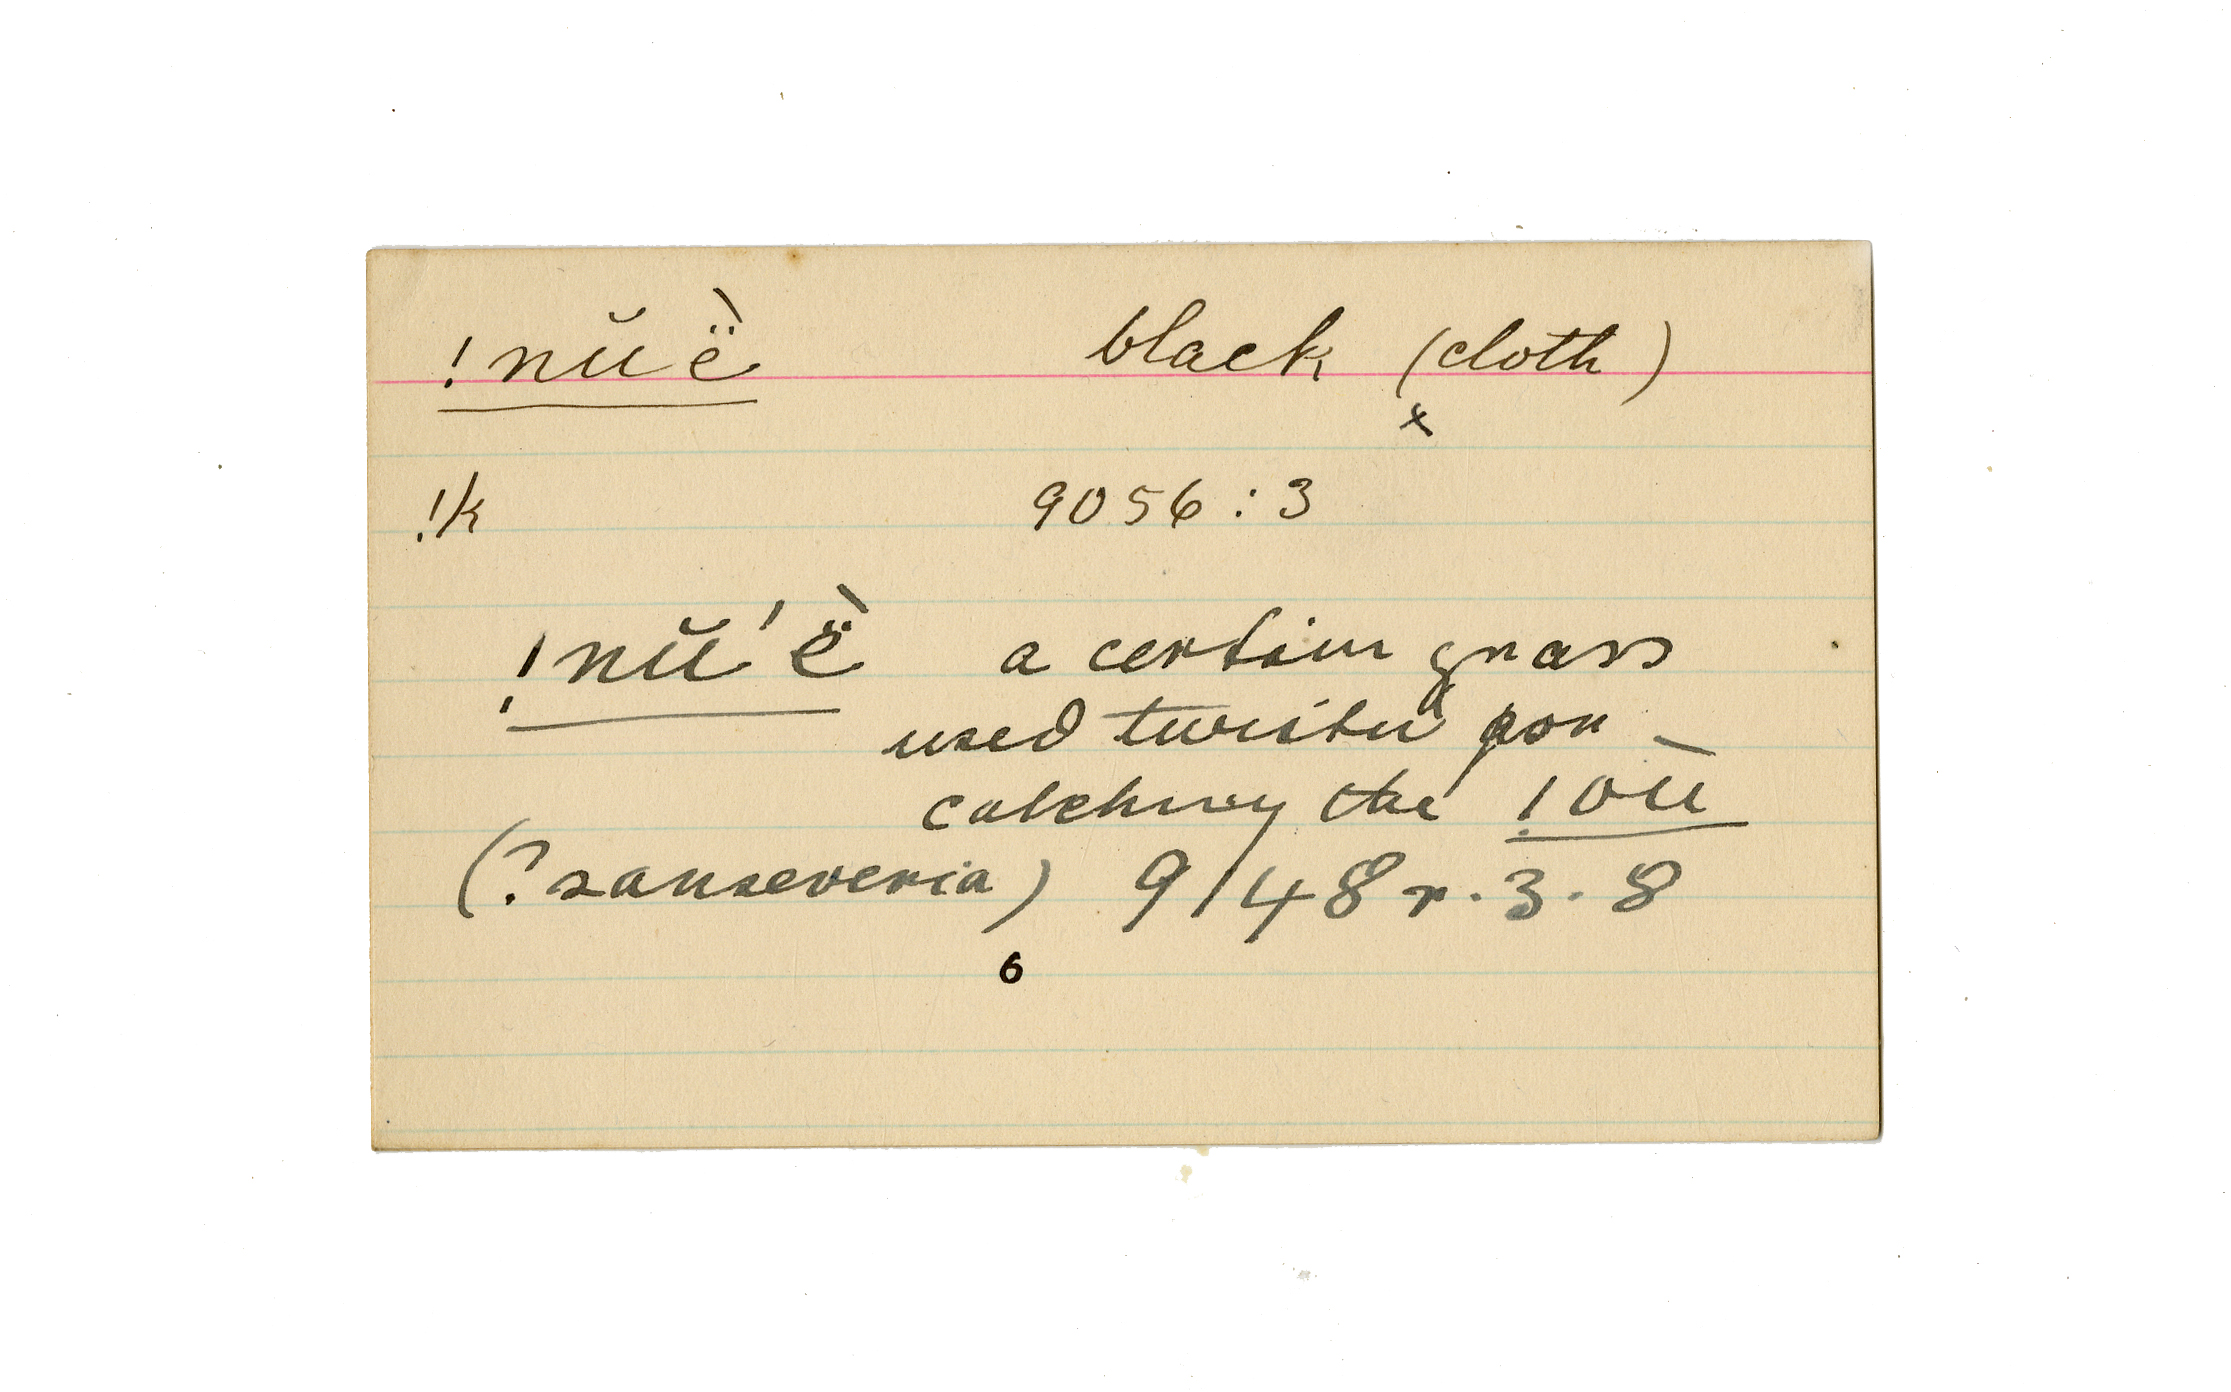 !nŭë̀ black (cloth)
x
!k 9056 : 3
!nŭ'ë̀ a certain grass
used twisted for
catching the !oū
(? sanseveria) 9148r. 3. 8
6